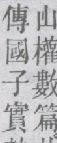 山權數篇
傳國子實